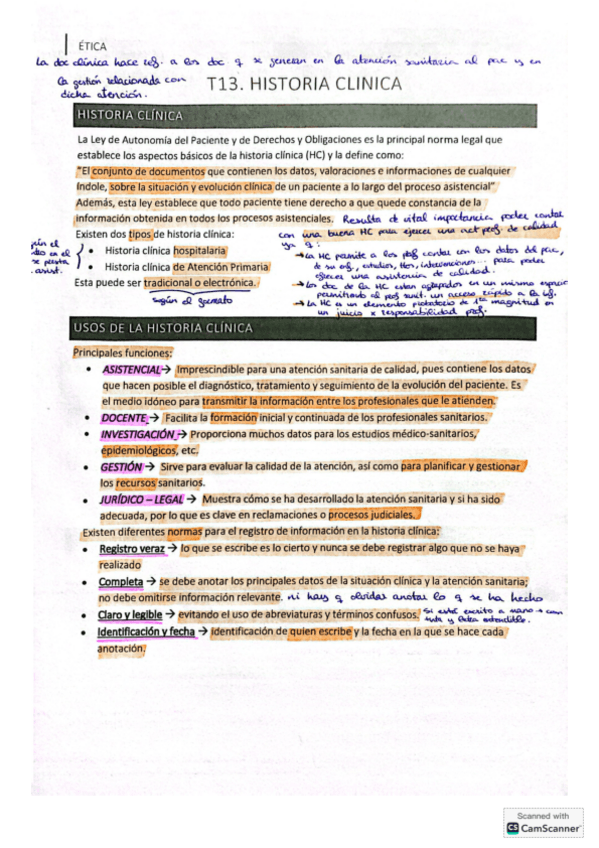 ÉTICA
La doc clínica hace ref. a los doc q se generan en la atención sanitaria al pac y en
la gestión relacionada con
dicha atención.
T13. HISTORIA CLINICA
HISTORIA CLÍNICA
La Ley de Autonomía del Paciente y de Derechos y Obligaciones es la principal norma legal que
establece los aspectos básicos de la historia clínica (HC) y la define como:
"El conjunto de documentos que contienen los datos, valoraciones e informaciones de cualquier
índole, sobre la situación y evolución clínica de un paciente a lo largo del proceso asistencial"
Además, esta ley establece que todo paciente tiene derecho a que quede constancia de la
información obtenida en todos los procesos asistenciales. Resulta de vital importancia poder contar
con una buena HC para ejercer una act prof. de calidad
ya q:
Existen dos tipos de historia clínica:
• Historia clínica hospitalaria
• Historia clínica de Atención Primaria
Esta puede ser tradicional o electrónica.
según el formato
→ La HC permite a los prof contar con los datos del pac,
de su enf, estudios, ttos, intervenciones... para poder
ejercer una asistencia de calidad.
→ Los doc de la HC estan agrupados en un mismo espacio
permitiendo al prof sanit. un acceso rápido a la
→ La HC es un elemento probatorio de 1ª magnitud en
un juicio x responsabilidad prof.
USOS DE LA HISTORIA CLÍNICA
Principales funciones:
• ASISTENCIAL→ Imprescindible para una atención sanitaria de calidad, pues contiene los datos
que hacen posible el diagnóstico, tratamiento y seguimiento de la evolución del paciente. Es
el medio idóneo para transmitir la información entre los profesionales que le atienden.
• DOCENTE → Facilita la formación inicial y continuada de los profesionales sanitarios.
• INVESTIGACIÓN → Proporciona muchos datos para los estudios médico-sanitarios,
epidemiológicos, etc.
• GESTIÓN → Sirve para evaluar la calidad de la atención, así como para planificar y gestionar
los recursos sanitarios.
• JURÍDICO – LEGAL → Muestra cómo se ha desarrollado la atención sanitaria y si ha sido
adecuada, por lo que es clave en reclamaciones o procesos judiciales.
Existen diferentes normas para el registro de información en la historia clínica:
• Registro veraz → lo que se escribe es lo cierto y nunca se debe registrar algo que no se haya
realizado
• Completa → se debe anotar los principales datos de la situación clínica y la atención sanitaria;
no debe omitirse información relevante. ni hay q olvidar anotar lo q se ha hecho
• Claro y legible → evitando el uso de abreviaturas y términos confusos. Si esté escrito a mano →
y letra entendible.
• Identificación y fecha → identificación de quien escribe y la fecha en la que se hace cada
anotación.
Scanned with
CS CamScanner